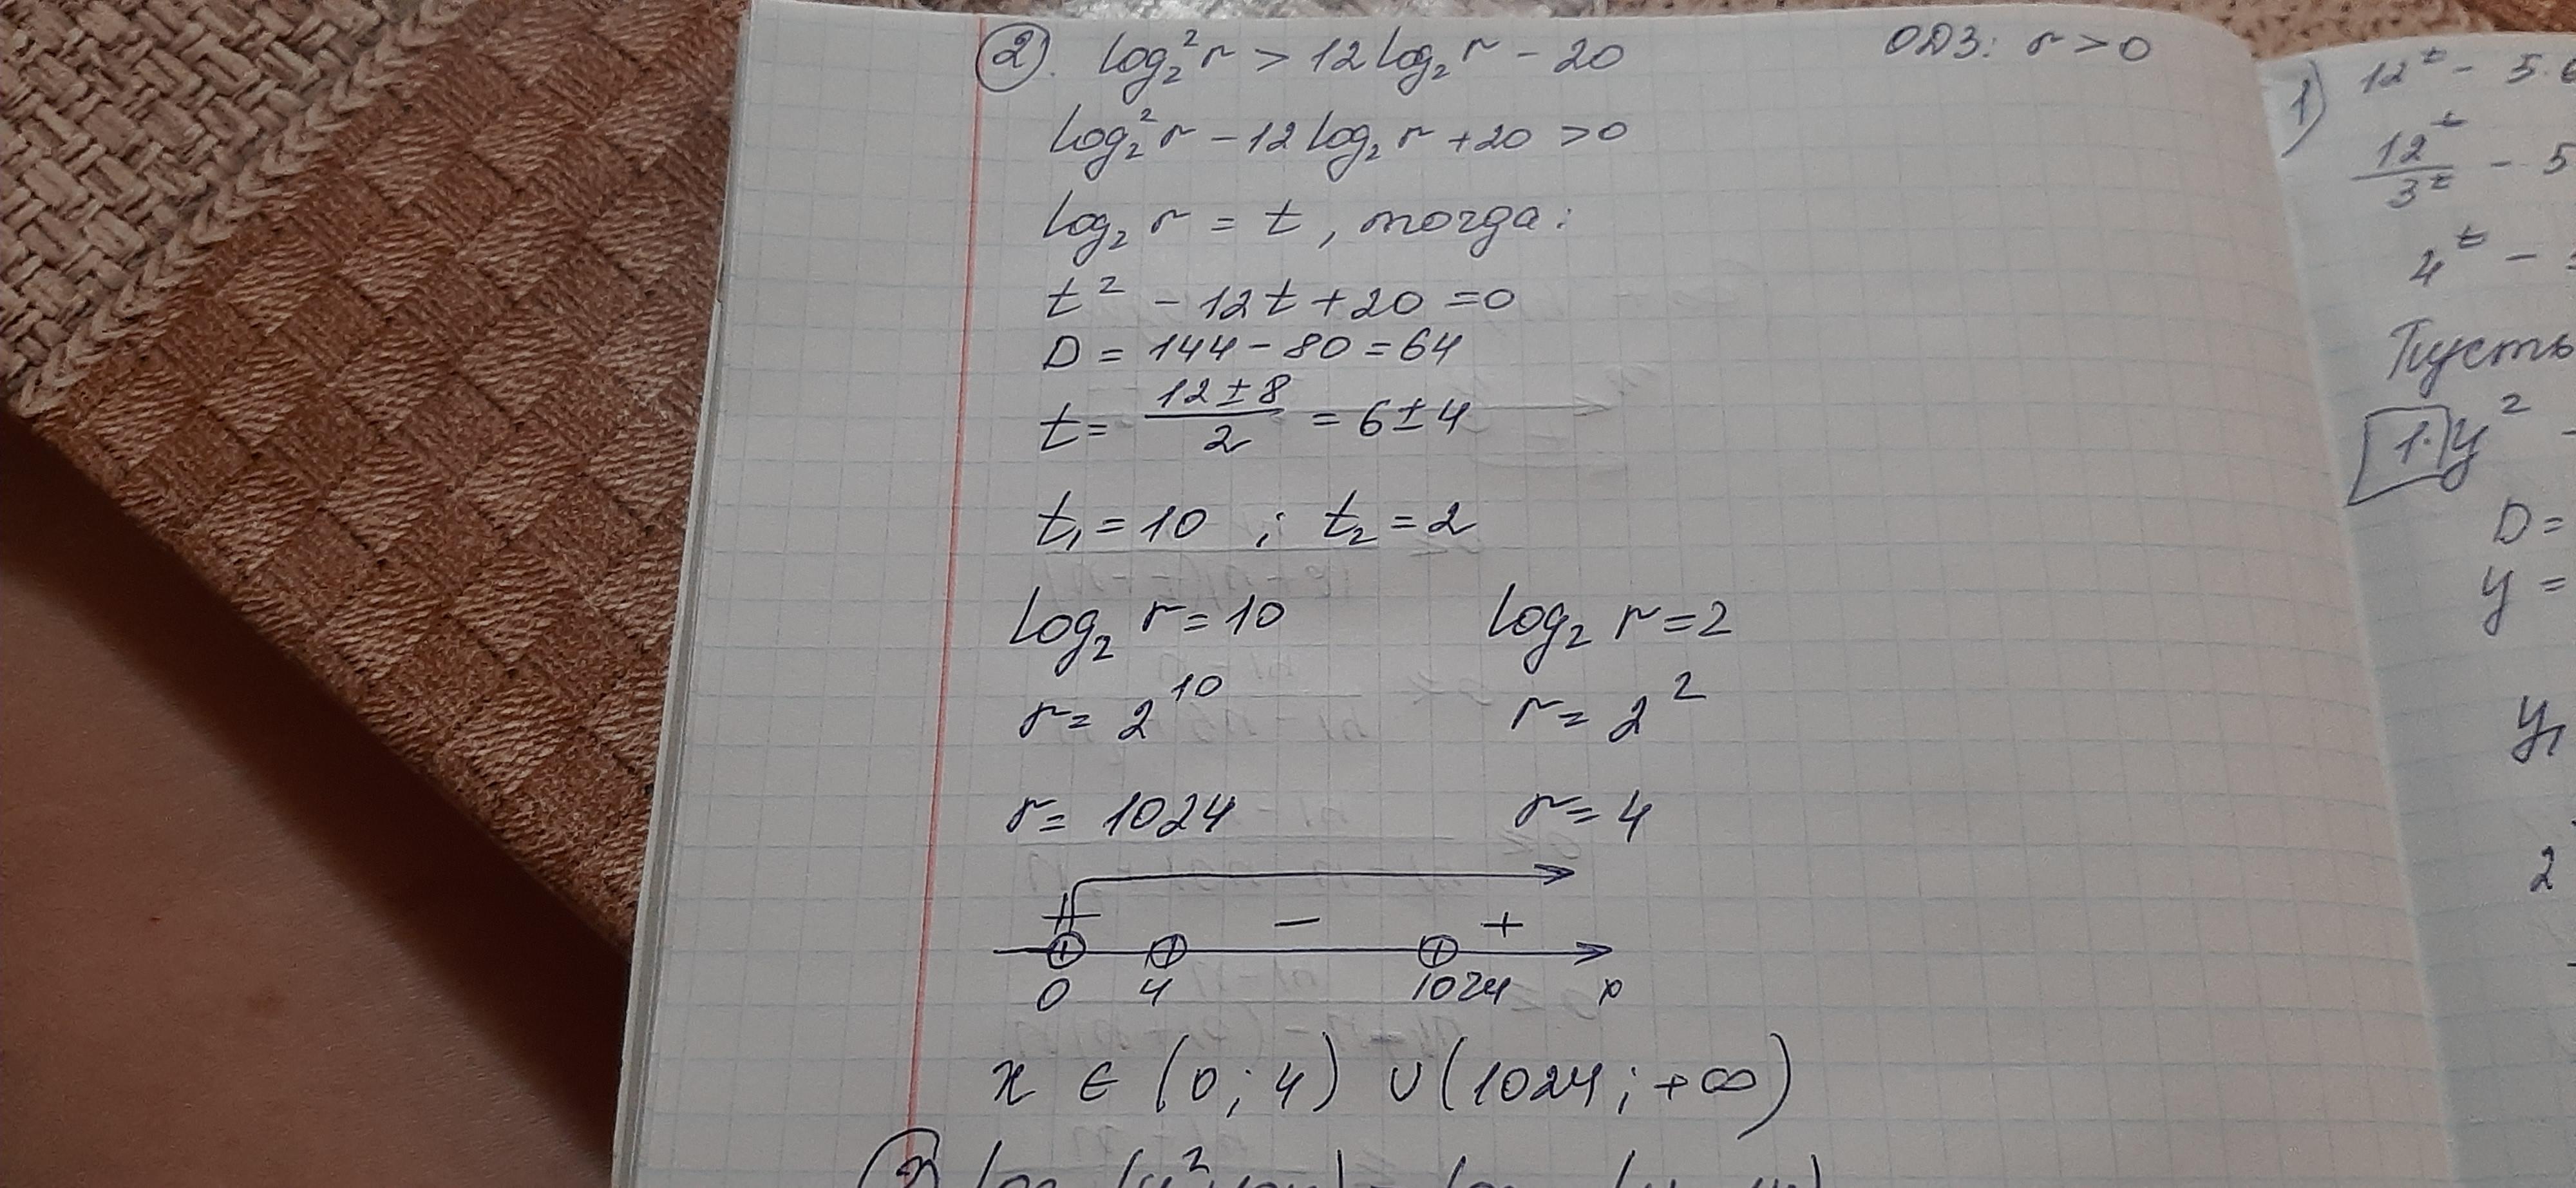 2. log₂²r > 12log₂r - 20   ОДЗ: r > 0
log₂²r - 12log₂r + 20 > 0
log₂r = t, тогда:
t² - 12t + 20 = 0
D = 144 - 80 = 64
t = (12 ± 8)/2 = 6 ± 4
t₁ = 10 ; t₂ = 2
log₂ r = 10   log₂ r = 2
r = 2¹⁰   r = 2²
r = 1024   r = 4
+ − +
0 4 1024
x ∈ (0; 4) ∪ (1024; +∞)
1) 12ᵗ -
12ᵗ/3ᵗ - 5
4ᵗ -
Пусть
1. y²
D =
y =
y₁
2